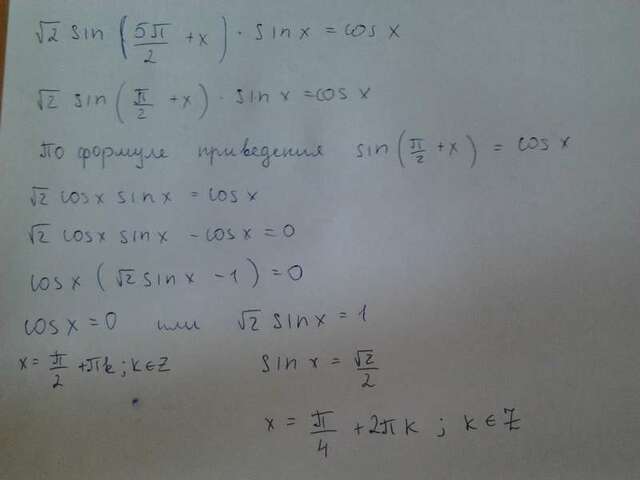 √2 sin (5π/2 + x) · sin x = cos x
√2 sin (π/2 + x) · sin x = cos x
По формуле приведения sin (π/2 + x) = cos x
√2 cos x sin x = cos x
√2 cos x sin x - cos x = 0
cos x (√2 sin x - 1) = 0
cos x = 0 или √2 sin x = 1
x = π/2 + πk ; k ∈ Z sin x = √2/2
x = π/4 + 2πk ; k ∈ Z